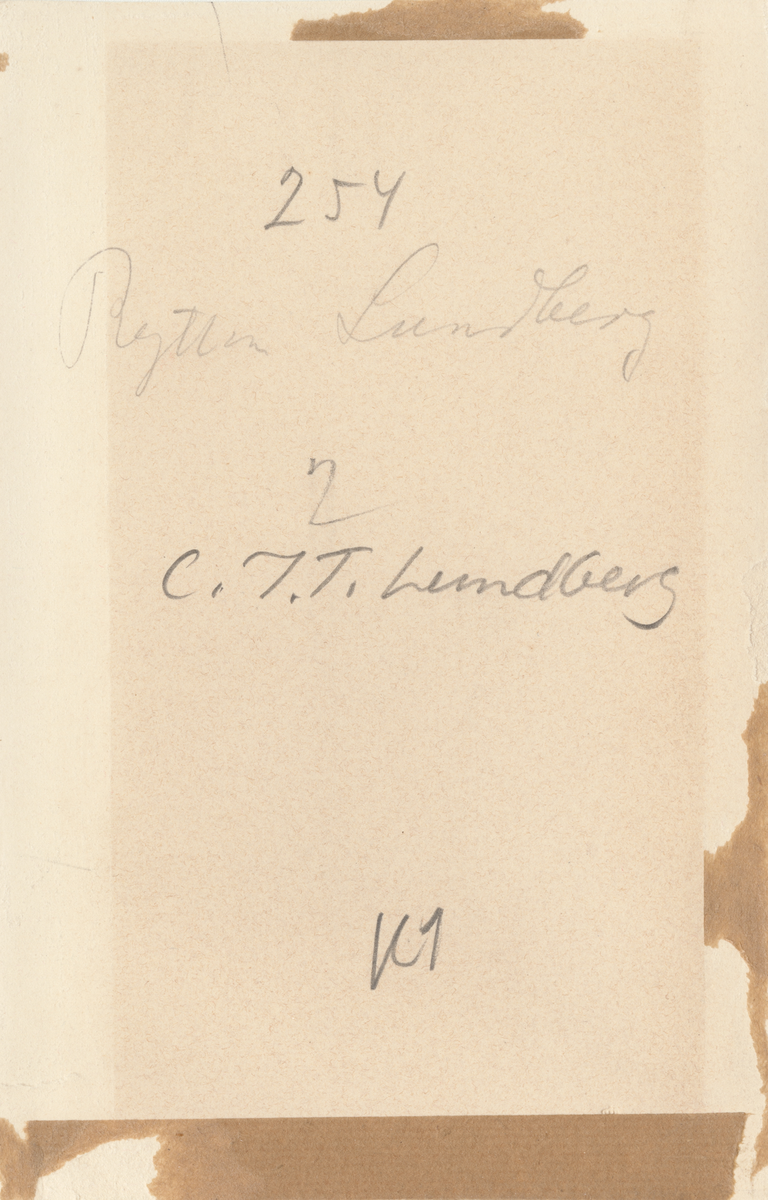 254
Ryttm Lundberg
2
C. J. T. Lundberg
K1